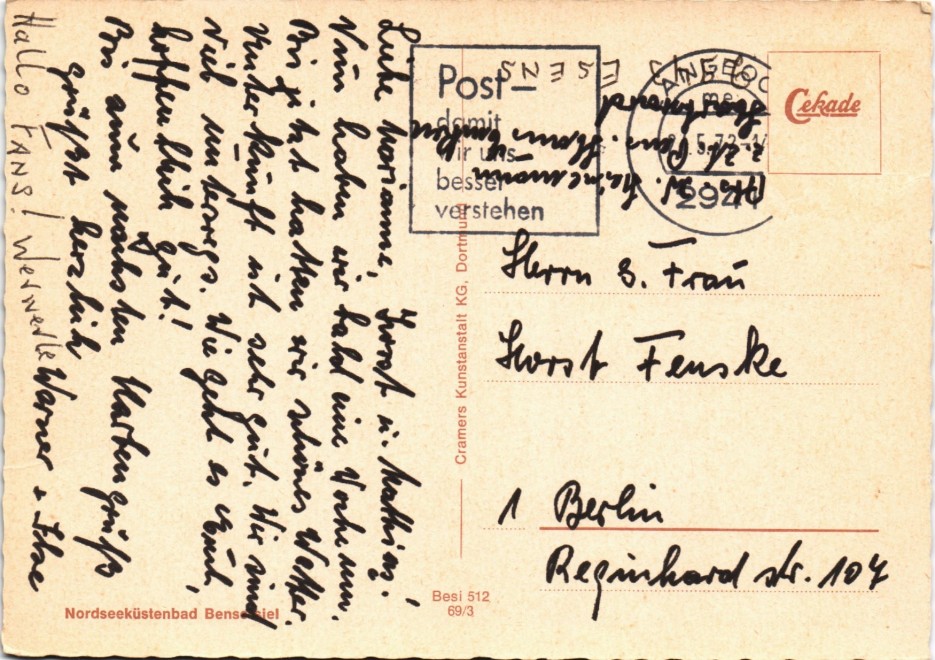 Liebe Marianne, Horst u. Mathias!
Nun haben wir bald eine Woche um.
Bis jetzt hatten wir schönes Wetter.
Unterkunft ist sehr gut. Wir sind
viel unterwegs. Wie geht es Euch,
hoffentlich gut!
Bis zum nächsten Kartengruß
grüßt herzlich
Werner + Ilse
Hallo FANS!
Post-
damit
wir uns
besser
verstehen
ESENS
2941
Cekade
Herrn u. Frau
Horst Fenske
1 Berlin
Reginhardstr. 107
Cramers Kunstanstalt KG, Dortmund
Besi 512
69/3
Nordseeküstenbad Bensersiel